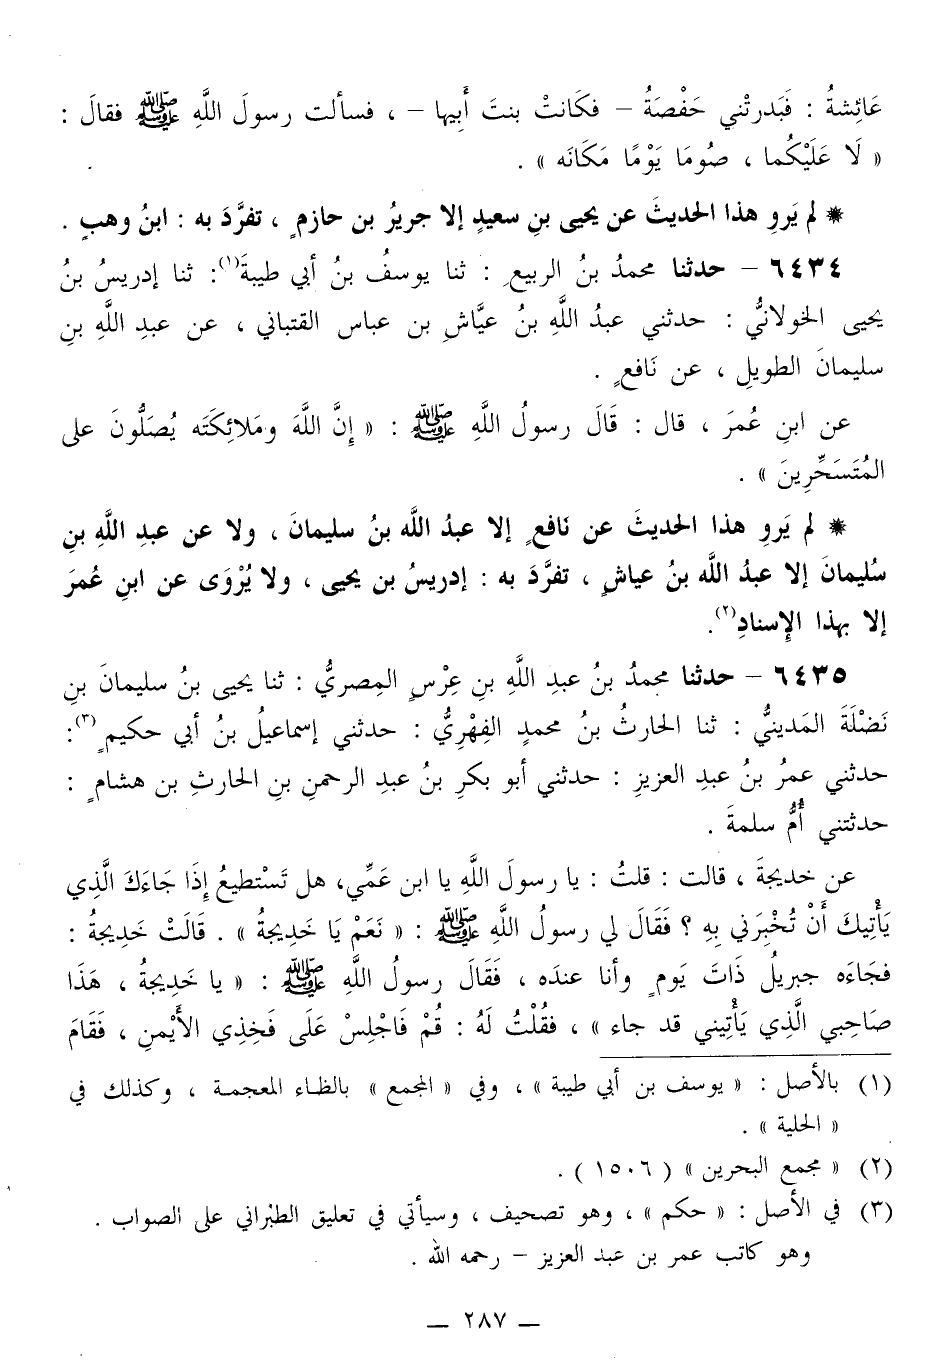 عَائِشةُ : فَبَدرتْني حَفْصَةُ – فكَانَتْ بنتَ أَبِيها – ، فسألت رسولَ اللَّهِ ﷺ فقالَ :
« لَا عَلَيْكُما ، صُومَا يَوْمًا مَكَانَه » .
* لم يَروِ هذا الحديثَ عن يحيى بنِ سعيدٍ إلا جريرُ بن حازمٍ ، تفرَّدَ به : ابنُ وهبٍ .
٦٤٣٤ – حدثنا محمدُ بنُ الربيعِ : ثنا يوسفُ بنُ أبي طيبةَ(١): ثنا إدريسُ بنُ
يحيى الخولانيُّ : حدثني عبدُ اللَّهِ بنُ عيَّاشِ بن عباس القتباني ، عن عبدِ اللَّهِ بنِ
سليمانَ الطويلِ ، عن نَافعٍ .
عن ابنِ عُمرَ ، قال : قَالَ رسولُ اللَّهِ ﷺ : « إِنَّ اللَّهَ ومَلائِكتَه يُصَلُّونَ على
المُتَسَحِّرِينَ » .
* لم يَروِ هذا الحديثَ عن نَافعٍ إلا عبدُ اللَّه بنُ سليمانَ ، ولا عن عبدِ اللَّهِ بنِ
سُليمانَ إلا عبدُ اللَّه بنُ عياشٍ ، تفرَّدَ به : إدريسُ بن يحيى ، ولا يُرْوَى عن ابنِ عُمرَ
إلا بهذا الإِسنادِ(٢).
٦٤٣٥ – حدثنا محمدُ بنُ عبدِ اللَّهِ بنِ عِرْسٍ المِصريُّ : ثنا يحيى بنُ سليمانَ بنِ
نَضْلَةَ المَدينيُّ : ثنا الحارثُ بنُ محمدٍ الفِهْرِيُّ : حدثني إسماعيلُ بنُ أبي حكيمٍ(٣):
حدثني عمرُ بنُ عبدِ العزيزِ : حدثني أبو بكرِ بنُ عبدِ الرحمنِ بنِ الحارثِ بن هشامٍ :
حدثتني أُمُّ سلمةَ .
عن خديجةَ ، قالت : قلتُ : يا رسولَ اللَّهِ يا ابن عَمِّي، هل تَسْتطيعُ إِذَا جَاءَكَ الَّذِي
يَأْتِيكَ أَنْ تُخْبِرَني بِهِ ؟ فَقَالَ لي رسولُ اللَّهِ ﷺ : « نَعَمْ يَا خَدِيجةُ » . قَالَتْ خَدِيجةُ :
فجَاءَه جبريلُ ذَاتَ يَومٍ وأنا عندَه ، فَقَالَ رسولُ اللَّهِ ﷺ : « يا خَدِيجةُ ، هَذَا
صَاحِبي الَّذِي يَأْتِيني قد جاء » ، فقُلْتُ لَهُ : قُمْ فَاجْلِسْ عَلَى فَخِذِي الأَيْمنِ ، فَقَامَ
(١) بالأصل : « يوسف بن أبي طيبة » ، وفي « المجمع » بالظاء المعجمة ، وكذلك في
« الحلية » .
(٢) « مجمع البحرين » ( ١٥٠٦ ) .
(٣) في الأصل : « حكم » ، وهو تصحيف ، وسيأتي في تعليق الطبراني على الصواب .
وهو كاتب عمر بن عبد العزيز – رحمه الله .
— ٢٨٧ —